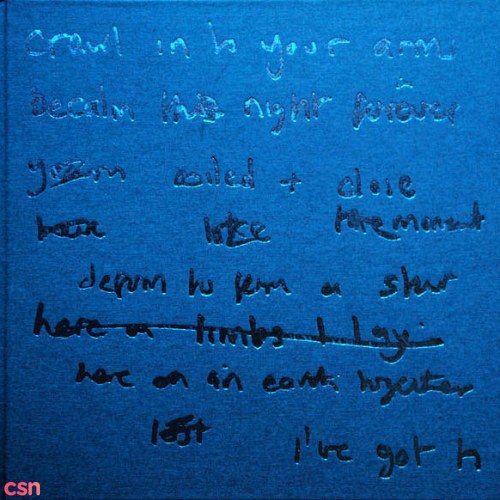 crawl in to your arms
Become this night forever
coiled + close
here like
to form a star
here on limbs I lay
here on an earth together
lost
I've got to
csn